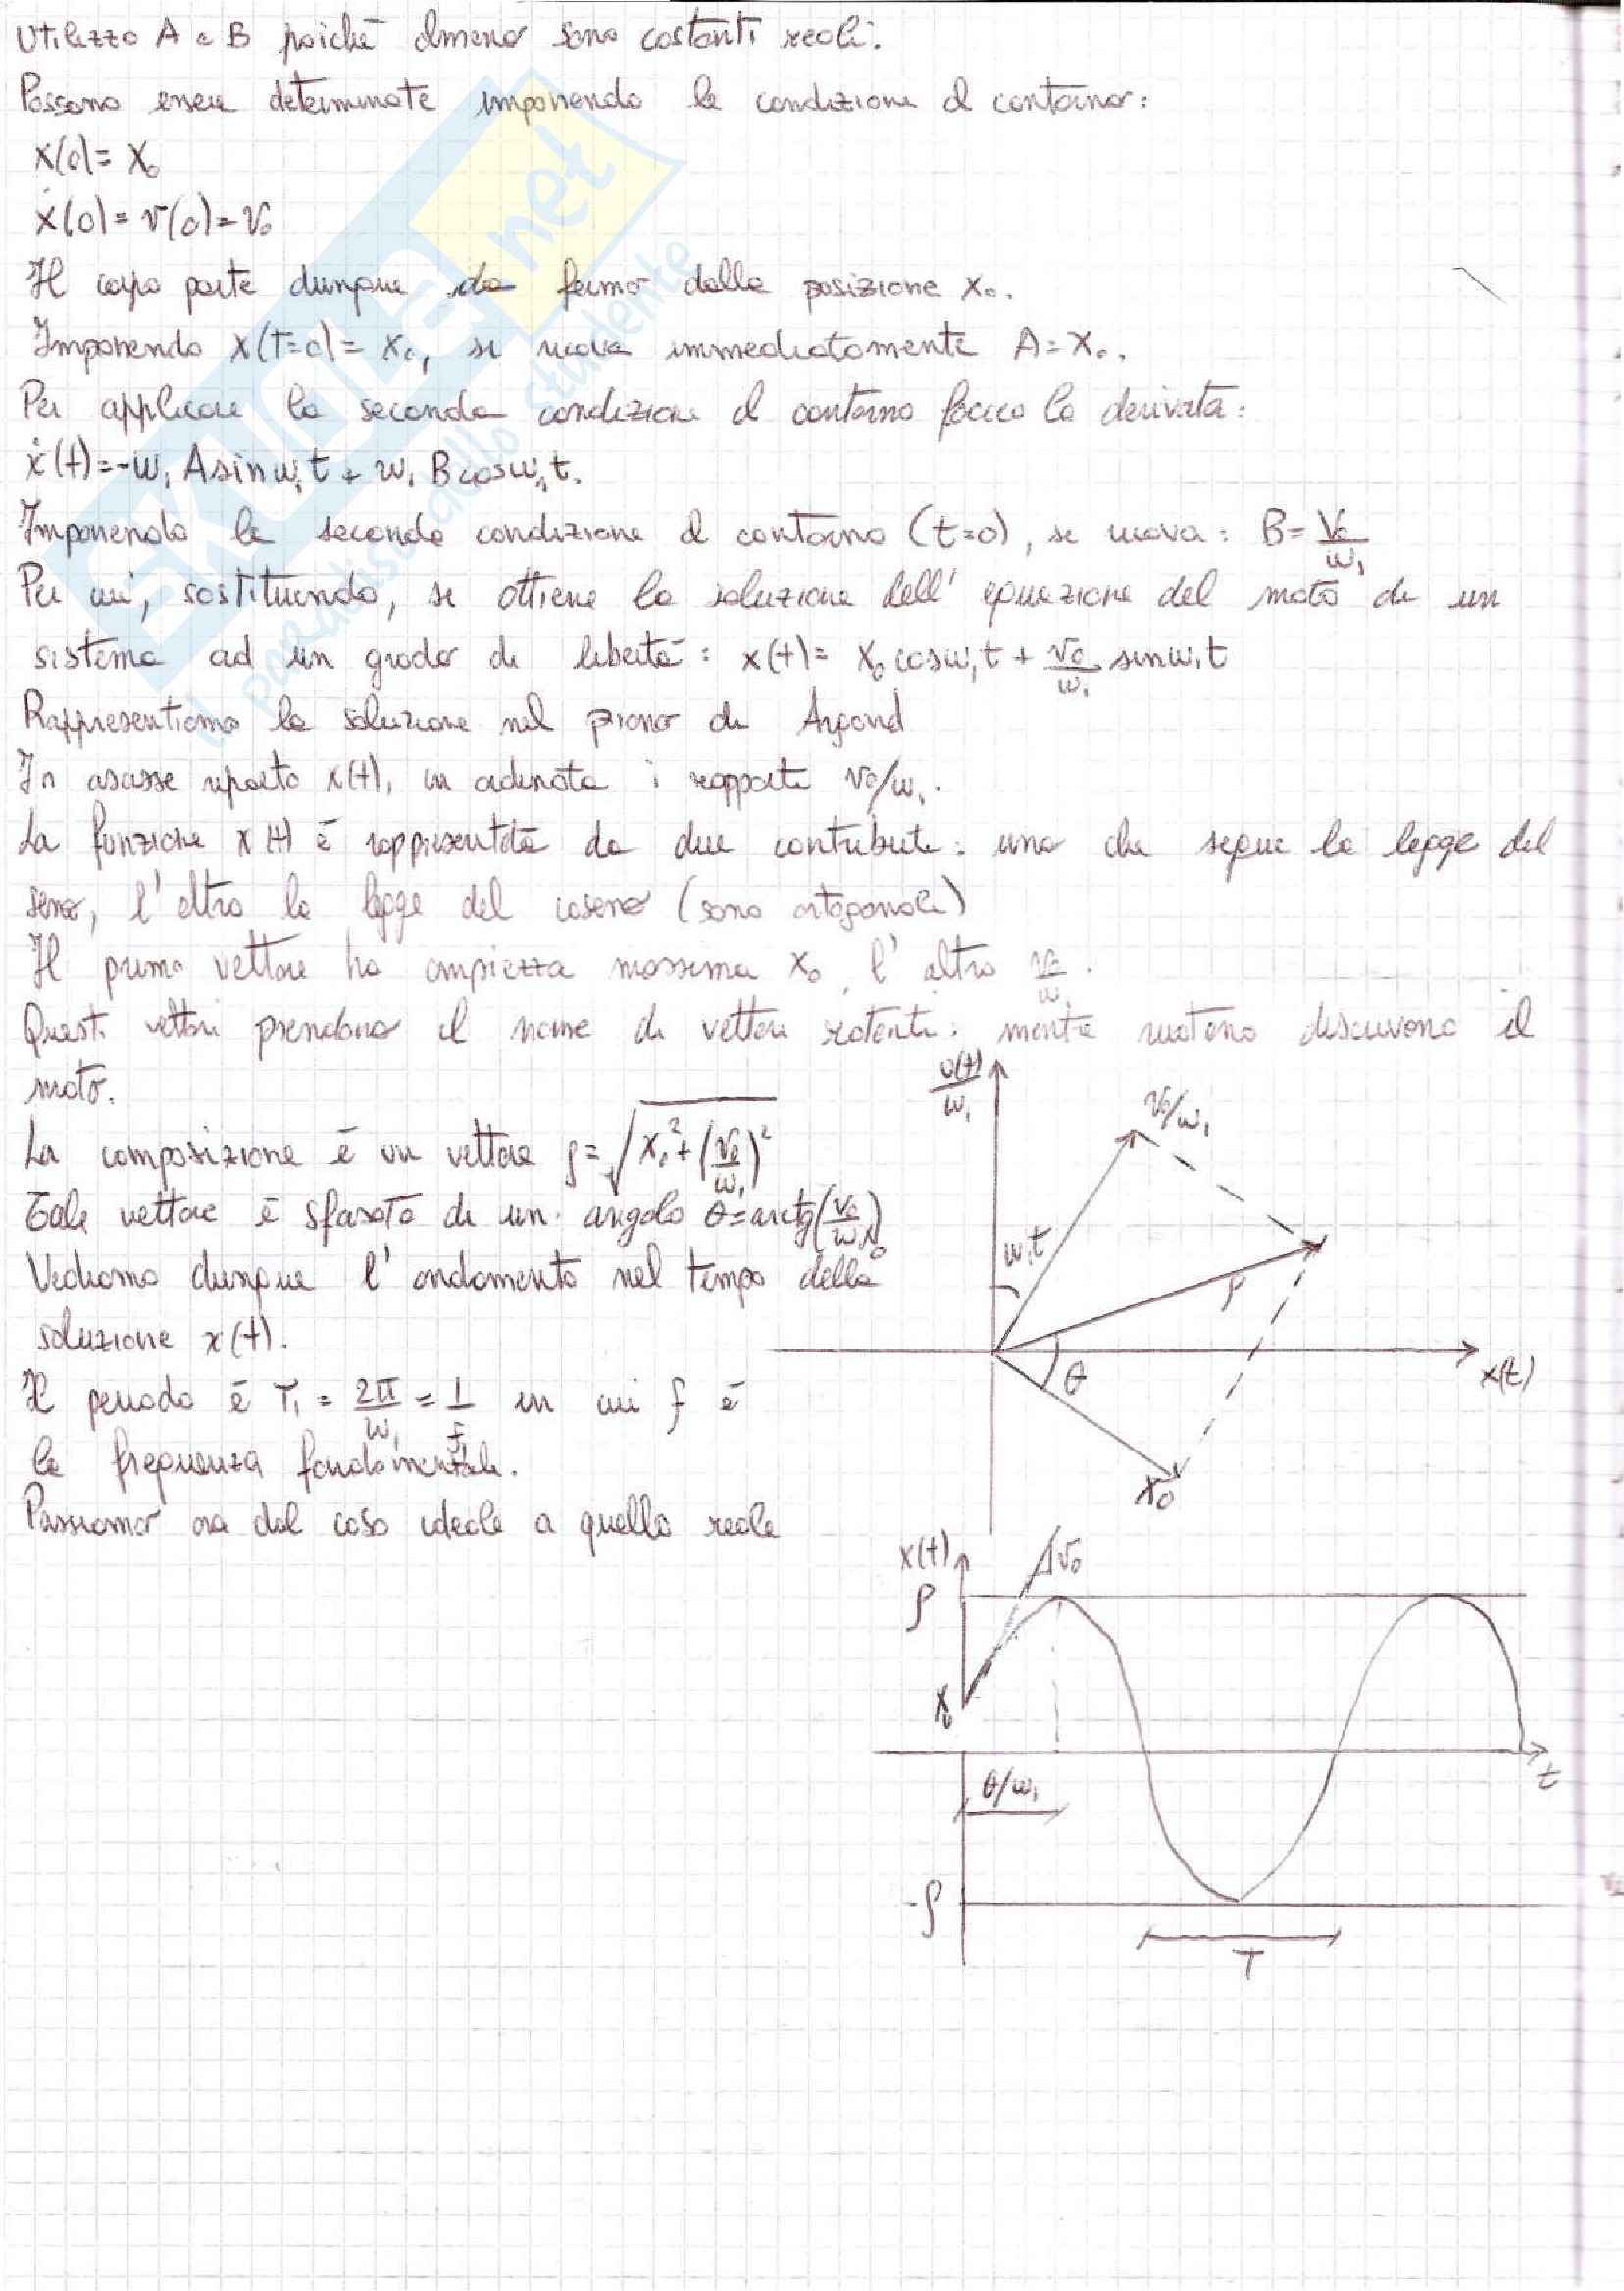 Utilizzo A e B poiché almeno sono costanti reali.
Possono essere determinate imponendo le condizioni al contorno:
x(0)= x₀
ẋ(0)= v(0)= v₀
Il corpo parte dunque da fermo dalla posizione x₀.
Imponendo x(t=0)= x₀, si trova immediatamente A= x₀.
Per applicare la seconda condizione al contorno faccio la derivata:
ẋ(t)=-ω₁ A sin ω₁t + ω₁ B cos ω₁t.
Imponendo la seconda condizione al contorno (t=0), si trova: B= v₀/ω₁
Per cui, sostituendo, si ottiene la soluzione dell' equazione del moto di un
sistema ad un grado di libertà: x(t)= x₀ cos ω₁t + v₀/ω₁ sin ω₁t
Rappresentiamo la soluzione nel piano di Argand
In ascisse riporto x(t), in ordinata i rapporti v₀/ω₁.
La funzione x(t) è rappresentata da due contributi: uno che segue la legge del
seno, l' altro la legge del coseno (sono ortogonali)
Il primo vettore ha ampiezza massima x₀, l' altro v₀/ω₁.
Questi vettori prendono il nome di vettori rotanti: mentre ruotano descrivono il
moto.
La composizione è un vettore ρ=√(x₀²+(v₀/ω₁)²)
Tale vettore è sfasato di un angolo θ=arctg(v₀/ω₁x₀)
Vediamo dunque l' andamento nel tempo della
soluzione x(t).
Il periodo è T₁ = 2π/ω₁ = 1/f in cui f è
la frequenza fondamentale.
Passiamo ora dal caso ideale a quello reale
v(t)/ω₁
v₀/ω₁
ω₁t
ρ
θ
x(t)
x₀
x(t)
v₀
ρ
x₀
θ/ω₁
t
-ρ
T
SKUOLA.net
il paradiso dello studente